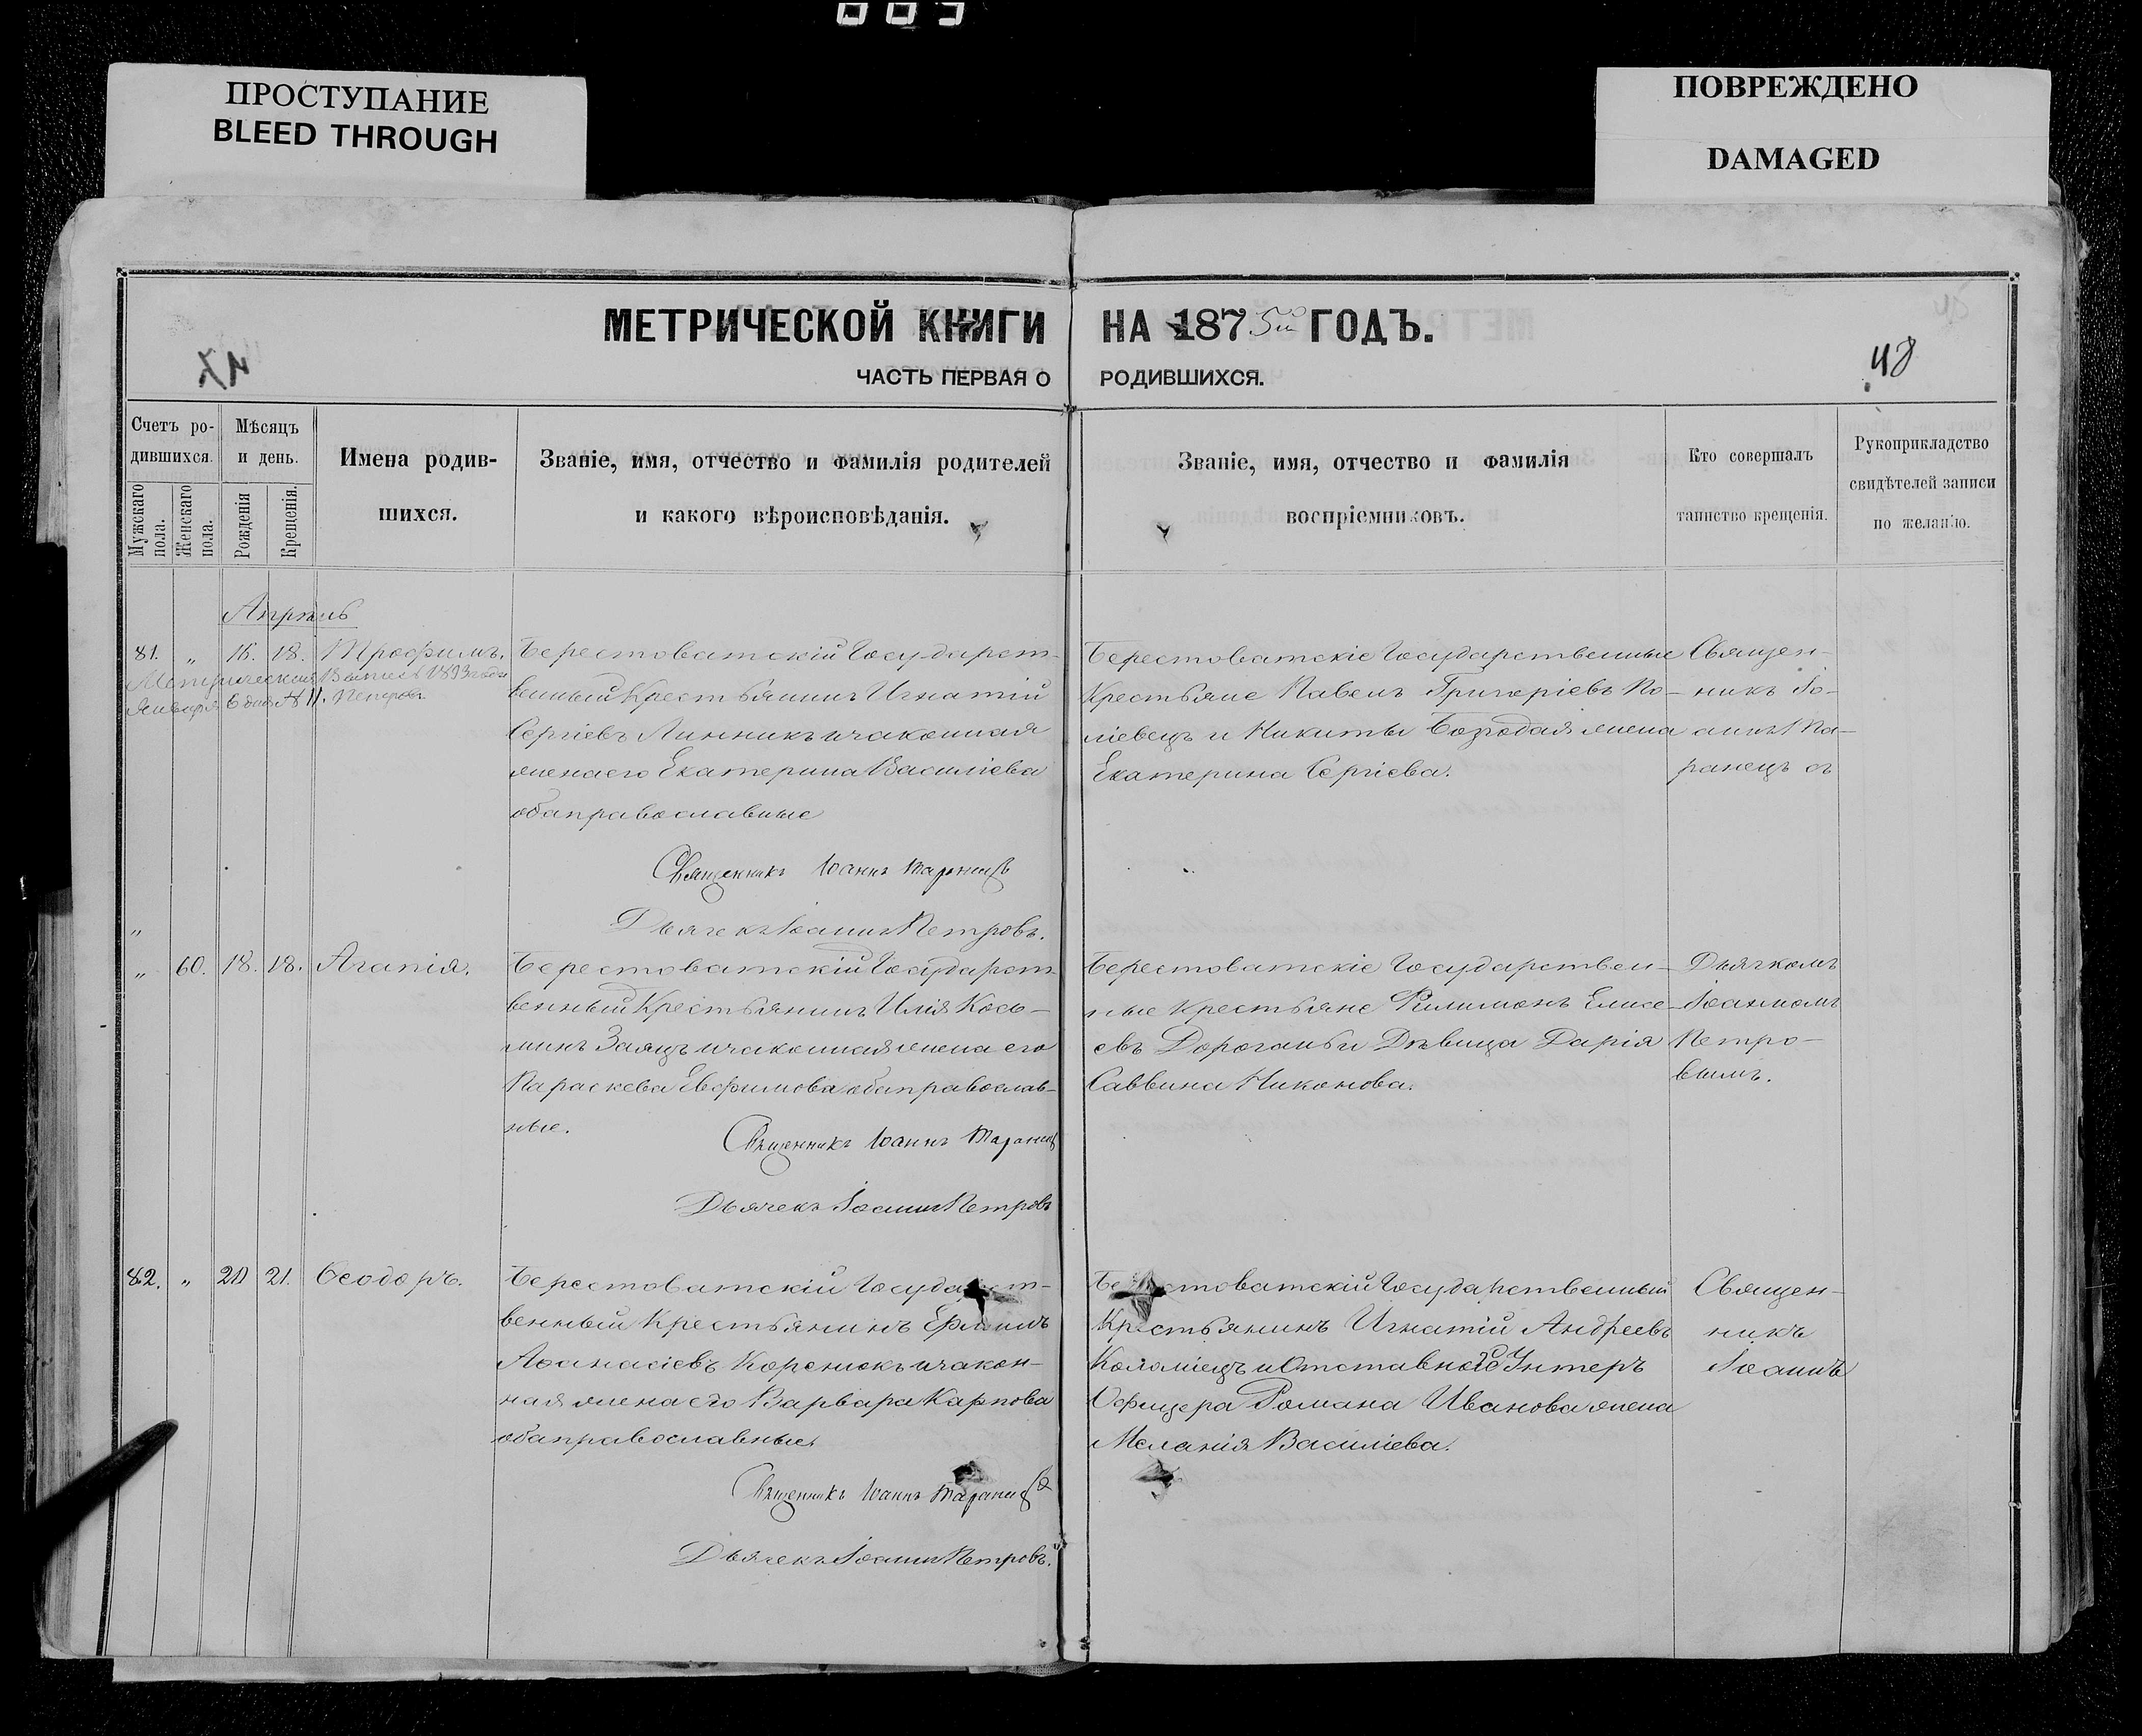 ПРОСТУПАНИЕ
BLEED THROUGH
ПОВРЕЖДЕНО
DAMAGED
МЕТРИЧЕСКОЙ КНИГИ НА 1875й ГОДЪ.
48
ЧАСТЬ ПЕРВАЯ О РОДИВШИХСЯ.
Счетъ ро-
дившихся.
Мужскаго пола.
Женскаго пола.
Мѣсяцъ
и день.
Рожденія
Крещенія.
Имена родив-
шихся.
Званіе, имя, отчество и фамилія родителей
и какого вѣроисповѣданія.
Званіе, имя, отчество и фамилія
воспріемниковъ.
Кто совершалъ
таинство крещенія.
Рукоприкладство
свидѣтелей записи
по желанію.
Апрѣль
81. " 16. 18. Трофимъ.
Метрическая Выпись 1893 года
Января 6 дня № 11. Петровъ
Берестоватскій Государст-
венный Крестьянинъ Игнатій
Сергіевъ Линникъ и законная
жена его Екатерина Василіева
оба православные
Священникъ Іоаннъ Таранецъ
Дьячекъ Іоаннъ Петровъ.
Берестоватскіе Государственные
Крестьяне Павелъ Григоріевъ По-
ліевецъ и Никиты Безродая жена
Екатерина Сергіева.
Священ-
никъ Іо-
аннъ Та-
ранецъ
"
" 60. 18. 18. Агапія.
Берестоватскій Государст-
венный Крестьянинъ Илія Кось-
минъ Заяцъ и законная жена его
Параскева Евфимова оба православ-
ные.
Священникъ Іоаннъ Таранецъ
Дьячекъ Іоаннъ Петровъ
Берестоватскіе Государствен-
ные Крестьяне Филимонъ Елисе-
евъ Дорогань и Дѣвица Дарія
Саввина Никонова.
Дьячкомъ
Іоанномъ
Петро-
вымъ.
82. " 20 21. Ѳеодоръ.
Берестоватскій Государст-
венный Крестьянинъ Ефимъ
Аѳанасіевъ Коренюкъ и закон-
ная жена его Варвара Карпова
оба православные.
Священникъ Іоаннъ Таранецъ
Дьячекъ Іоаннъ Петровъ.
Берестоватскій Государственный
Крестьянинъ Игнатій Андреевъ
Коломіецъ и Отставного Унтеръ
Офицера Романа Иванова жена
Меланія Василіева.
Священ-
никъ
Іоаннъ